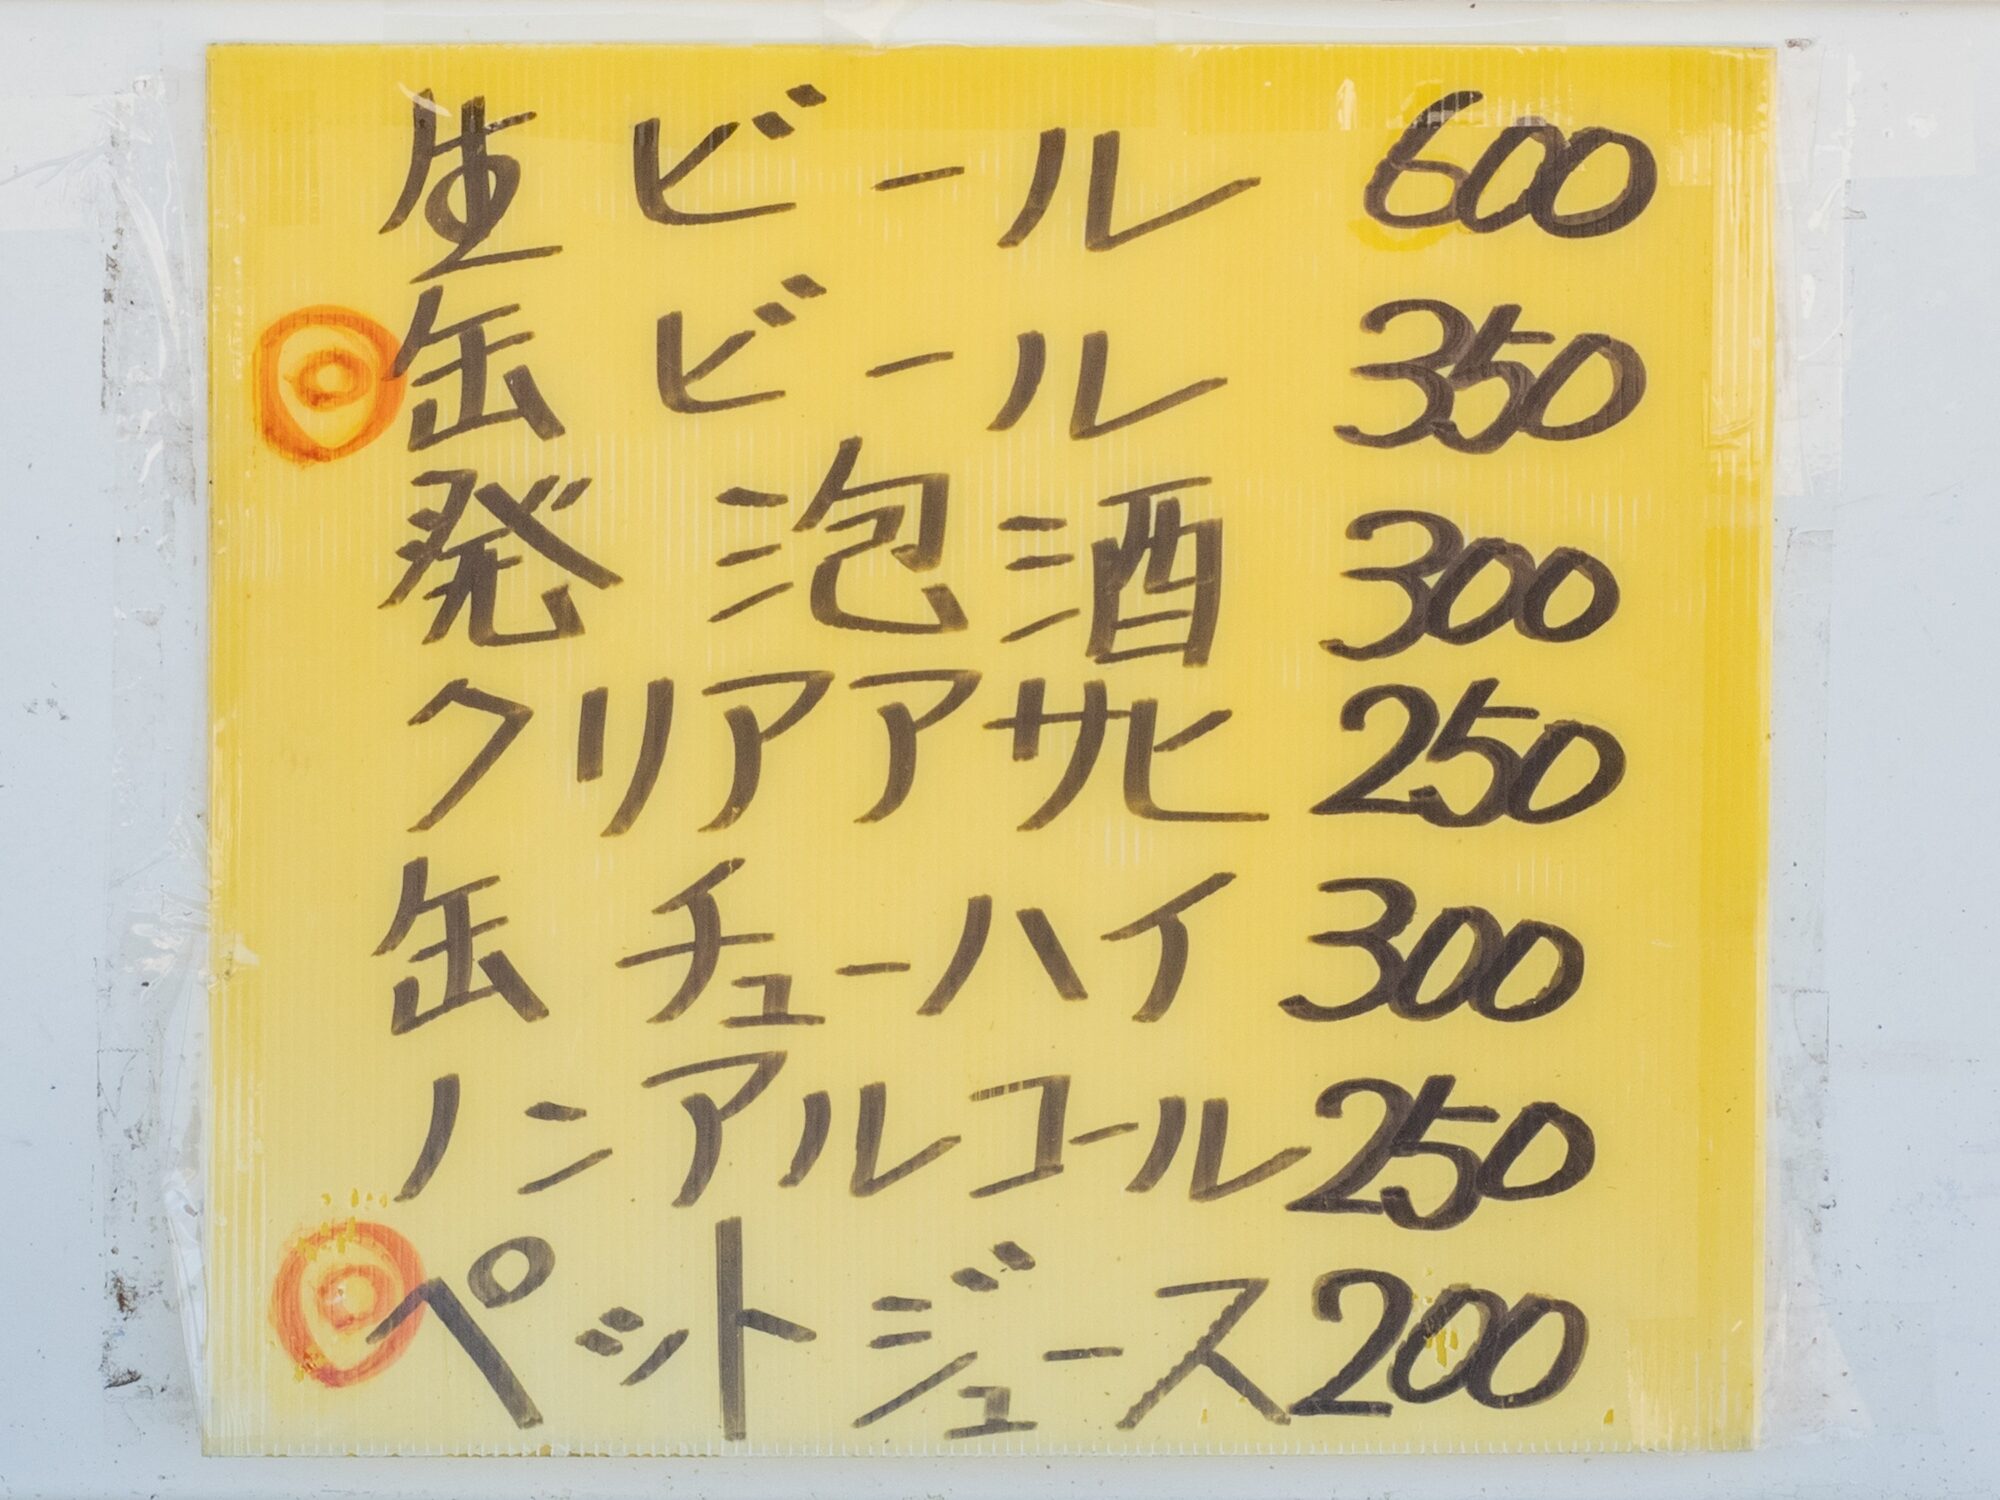 生ビール 600
◎缶ビール 350
発泡酒 300
クリアアサヒ 250
缶チューハイ 300
ノンアルコール 250
◎ペットジュース 200